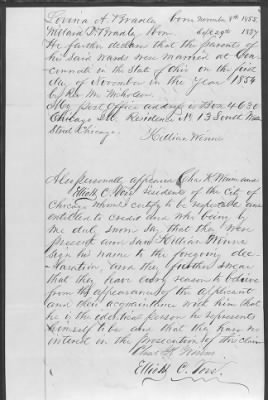 Lovina A. Branly born November 8th 1855
Millard F. Branly Born Sept 29th 1857
He further declares that the parents of
his said wards were married at Cin-
cinnati in the State of Ohio on the first
day of November in the Year 1854
by Rev. Mr. Nicholson.
My Post Office address is Box 4630
Chicago Ill Residence No 13 South
Street Chicago.
Killian Winne
Also personally appeared Chas. H. and
Elliott C. residents of the City of
Chicago whom I certify to be respectable and
entitled to credit and who being by
me duly sworn say that they were
present and saw Killian Winne
sign his name to the foregoing dec-
laration, and they further swear
that they have every reason to believe
from the appearance of the applicant
and their acquaintance with him that
he is the identical person he represents
himself to be and that they have no
interest in the prosecution of this claim
Chas. H.
Elliott C.